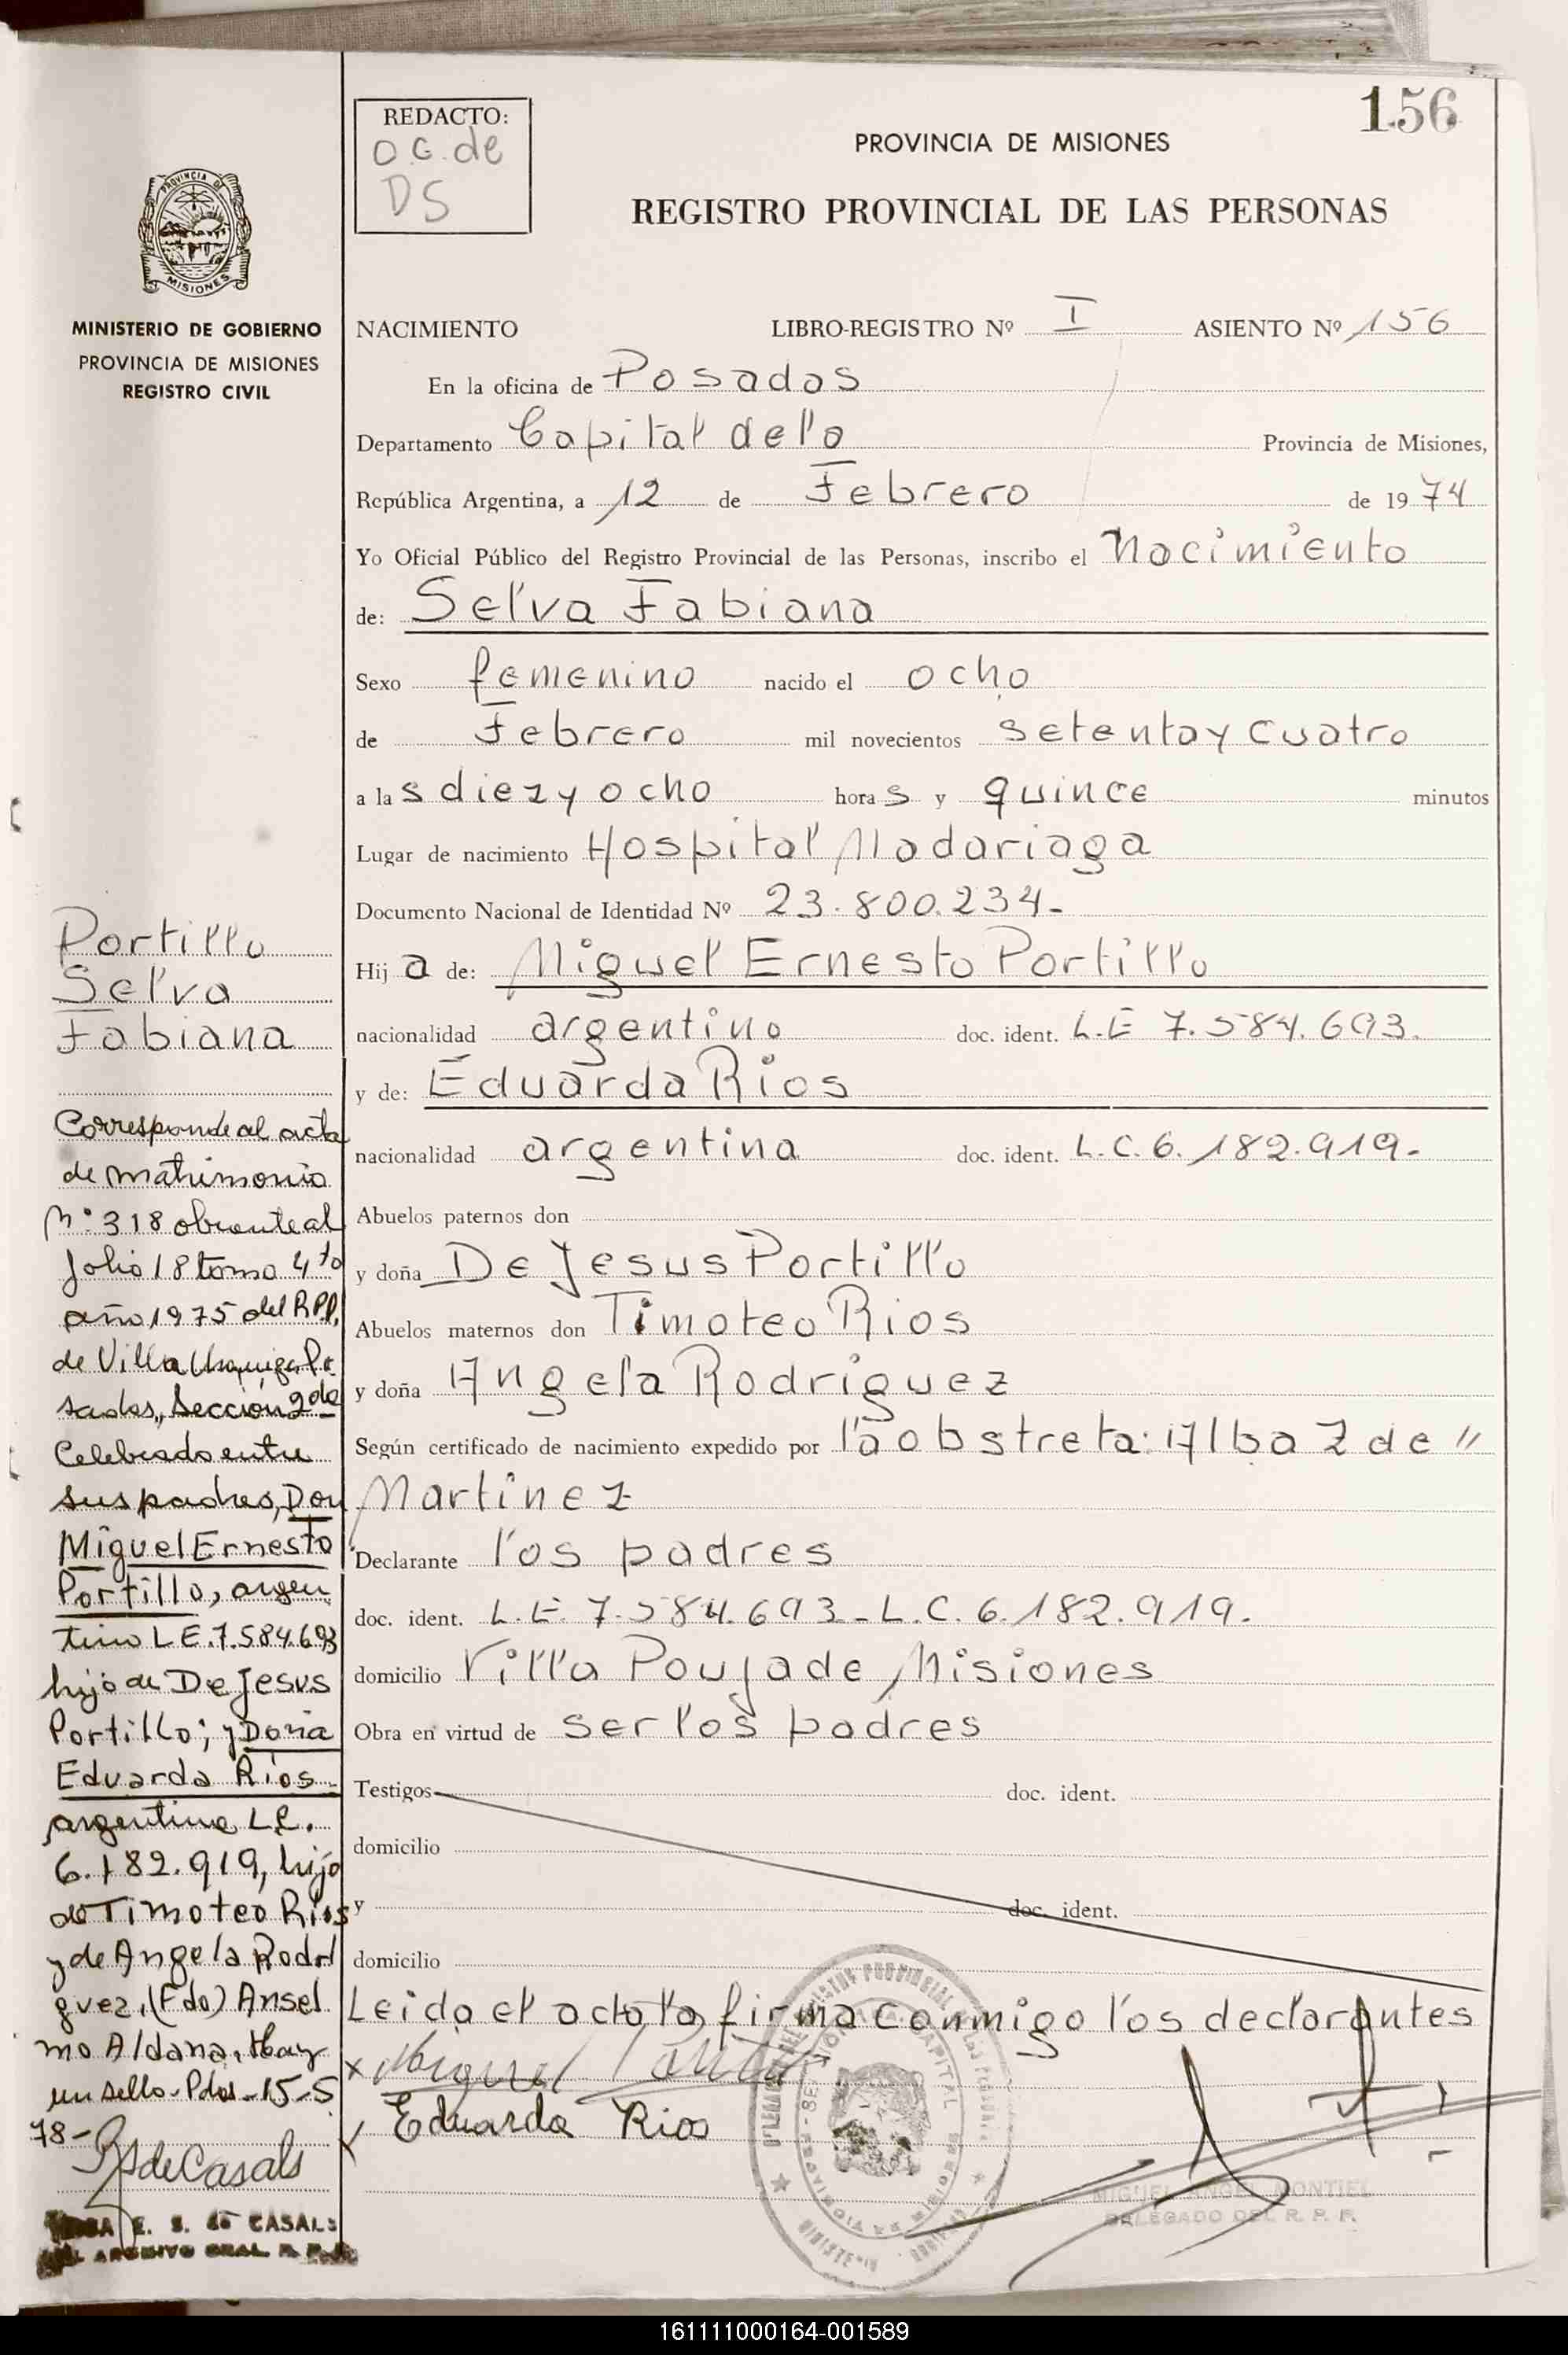 156
REDACTO:
O.G. de
DS
PROVINCIA DE MISIONES
REGISTRO PROVINCIAL DE LAS PERSONAS
PROVINCIA DE
MISIONES
MINISTERIO DE GOBIERNO
PROVINCIA DE MISIONES
REGISTRO CIVIL
NACIMIENTO LIBRO-REGISTRO Nº I ASIENTO Nº 156
En la oficina de Posadas
Departamento Capital de la Provincia de Misiones,
República Argentina, a 12 de Febrero de 1974
Yo Oficial Público del Registro Provincial de las Personas, inscribo el Nacimiento
de: Selva Fabiana
Sexo femenino nacido el ocho
de Febrero mil novecientos setenta y cuatro
a las diez y ocho horas y quince minutos
Lugar de nacimiento Hospital Madariaga
Documento Nacional de Identidad Nº 23.800.234-
Hija de: Miguel Ernesto Portillo
nacionalidad argentino doc. ident. L.E 7.584.693.
y de: Eduarda Rios
nacionalidad argentina doc. ident. L.C. 6.182.919.
Abuelos paternos don
y doña De Jesus Portillo
Abuelos maternos don Timoteo Rios
y doña Angela Rodriguez
Según certificado de nacimiento expedido por la obstreta: Alba Z de "
Martinez
Declarante los padres
doc. ident. L.E. 7.584.693 - L.C. 6.182.919.
domicilio Villa Poujade Misiones
Obra en virtud de ser los padres
Testigos doc. ident.
domicilio
y doc. ident.
domicilio
Leida el acta la firma conmigo los declarantes
x Miguel Portillo
x Eduarda Rios
MIGUEL ANGEL MONTIEL
DELEGADO DEL R. P. P.
Portillo
Selva
Fabiana
Corresponde al acta
de matrimonio
Nº 318 obrante al
folio 18 tomo 4to
año 1975 del R.P.P.
de Villa Urquiza Po
sadas, Sección 2da
Celebrado entre
sus padres, Don
Miguel Ernesto
Portillo, argen
tino L.E. 7.584.693
hijo de De Jesus
Portillo; y Doña
Eduarda Rios-
argentina L.C.
6.182.919, hija
de Timoteo Rios
y de Angela Rodri
guez, (Fdo) Ansel
mo Aldana. Hay
un sello - Pdas - 15-5
78-
de Casals
E. S. de CASALS
ARCHIVO GRAL. R. P. P.
161111000164-001589